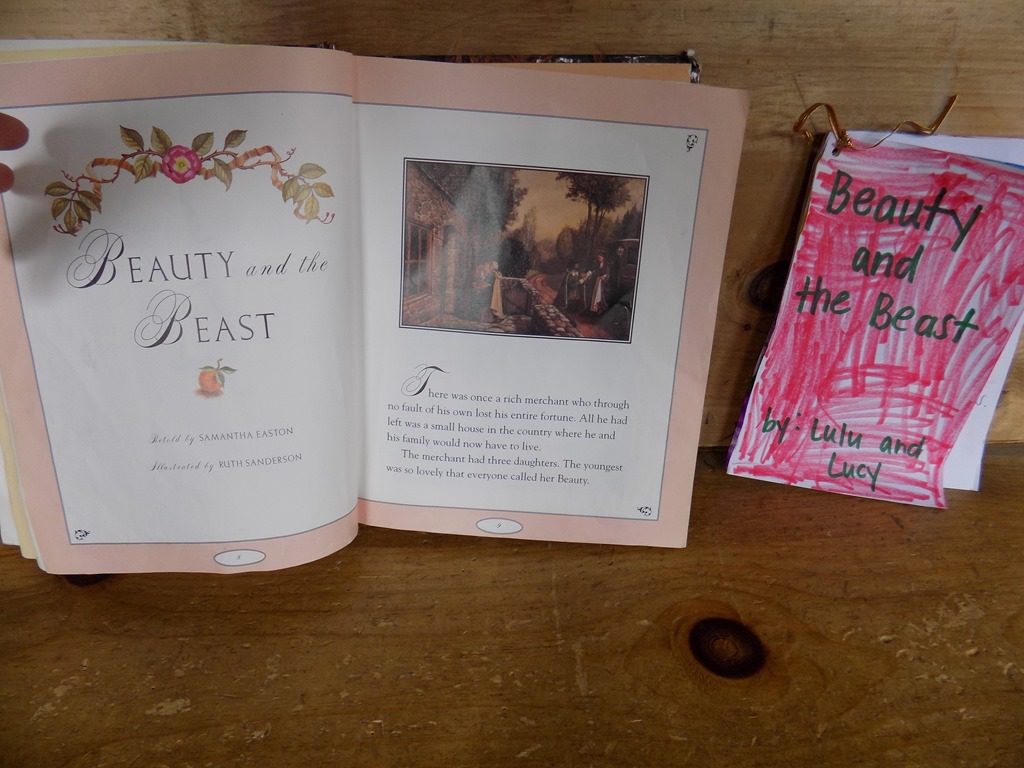 BEAUTY and the
BEAST
Retold by SAMANTHA EASTON
Illustrated by RUTH SANDERSON
8
There was once a rich merchant who through
no fault of his own lost his entire fortune. All he had
left was a small house in the country where he and
his family would now have to live.
The merchant had three daughters. The youngest
was so lovely that everyone called her Beauty.
9
Beauty
and
the Beast
by: Lulu and
Lucy